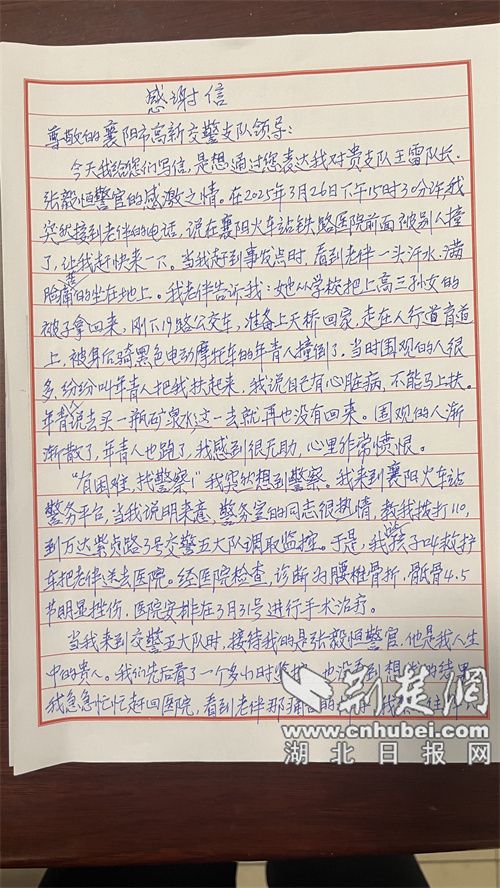 感谢信
尊敬的襄阳市高新交警支队领导:
今天我给您们写信,是想通过您表达我对贵支队王雷队长、
张毅恒警官的感激之情。在2025年3月26日下午15时30分许,我
突然接到老伴的电话,说在襄阳火车站铁路医院前面被别人撞
了,让我赶快来一下。当我赶到事发点时,看到老伴一头汗水、满
脸痛苦的坐在地上。我老伴告诉我:她从学校把上高三孙女的
被子拿回来,刚下19路公交车,准备上天桥回家,走在人行道盲道
上,被身后骑黑色电动摩托车的年青人撞倒了。当时围观的人很
多,纷纷叫年青人把我扶起来,我说自己有心脏病,不能马上扶。
年青说去买一瓶矿泉水,这一去就再也没有回来。围观的人渐
渐散了,年青人也跑了,我感到很无助,心里非常愤恨。
“有困难,找警察!”我突然想到警察。我来到襄阳火车站
警务平台,当我说明来意,警务室的同志很热情,教我拨打110,
到万达紫贞路3号交警五大队调取监控。于是,我让孩子叫救护
车把老伴送去医院。经医院检查,诊断为腰椎骨折,骶骨4.5
节明显挫伤,医院安排在3月31号进行手术治疗。
当我来到交警五大队时,接待我的是张毅恒警官,他是我人生
中的贵人。我们先后看了一个多小时监控,也没看到想要的结果
我急急忙忙赶回医院,看到老伴那痛苦的
荆楚网
www.cnhubei.com
湖北日报网